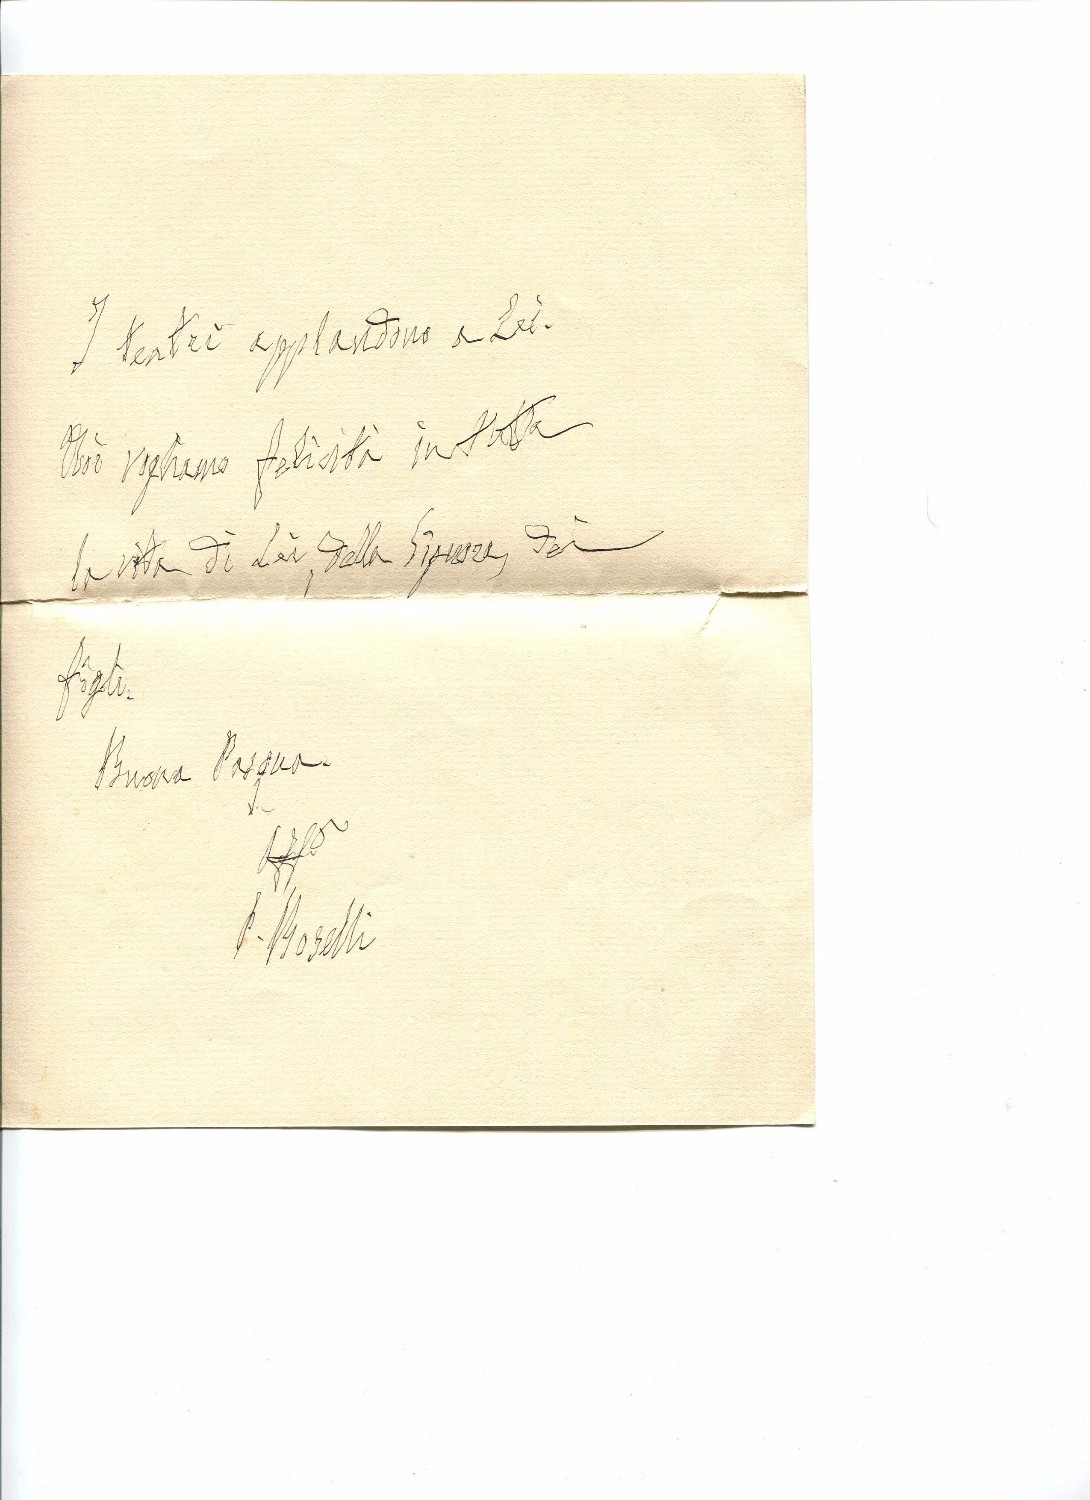 I teatri applaudono a Lei.
Noi vogliamo felicità in tutta
la vita di Lei, della Signora, dei
figli.
Buona Pasqua.
Aff.º
P. Boselli